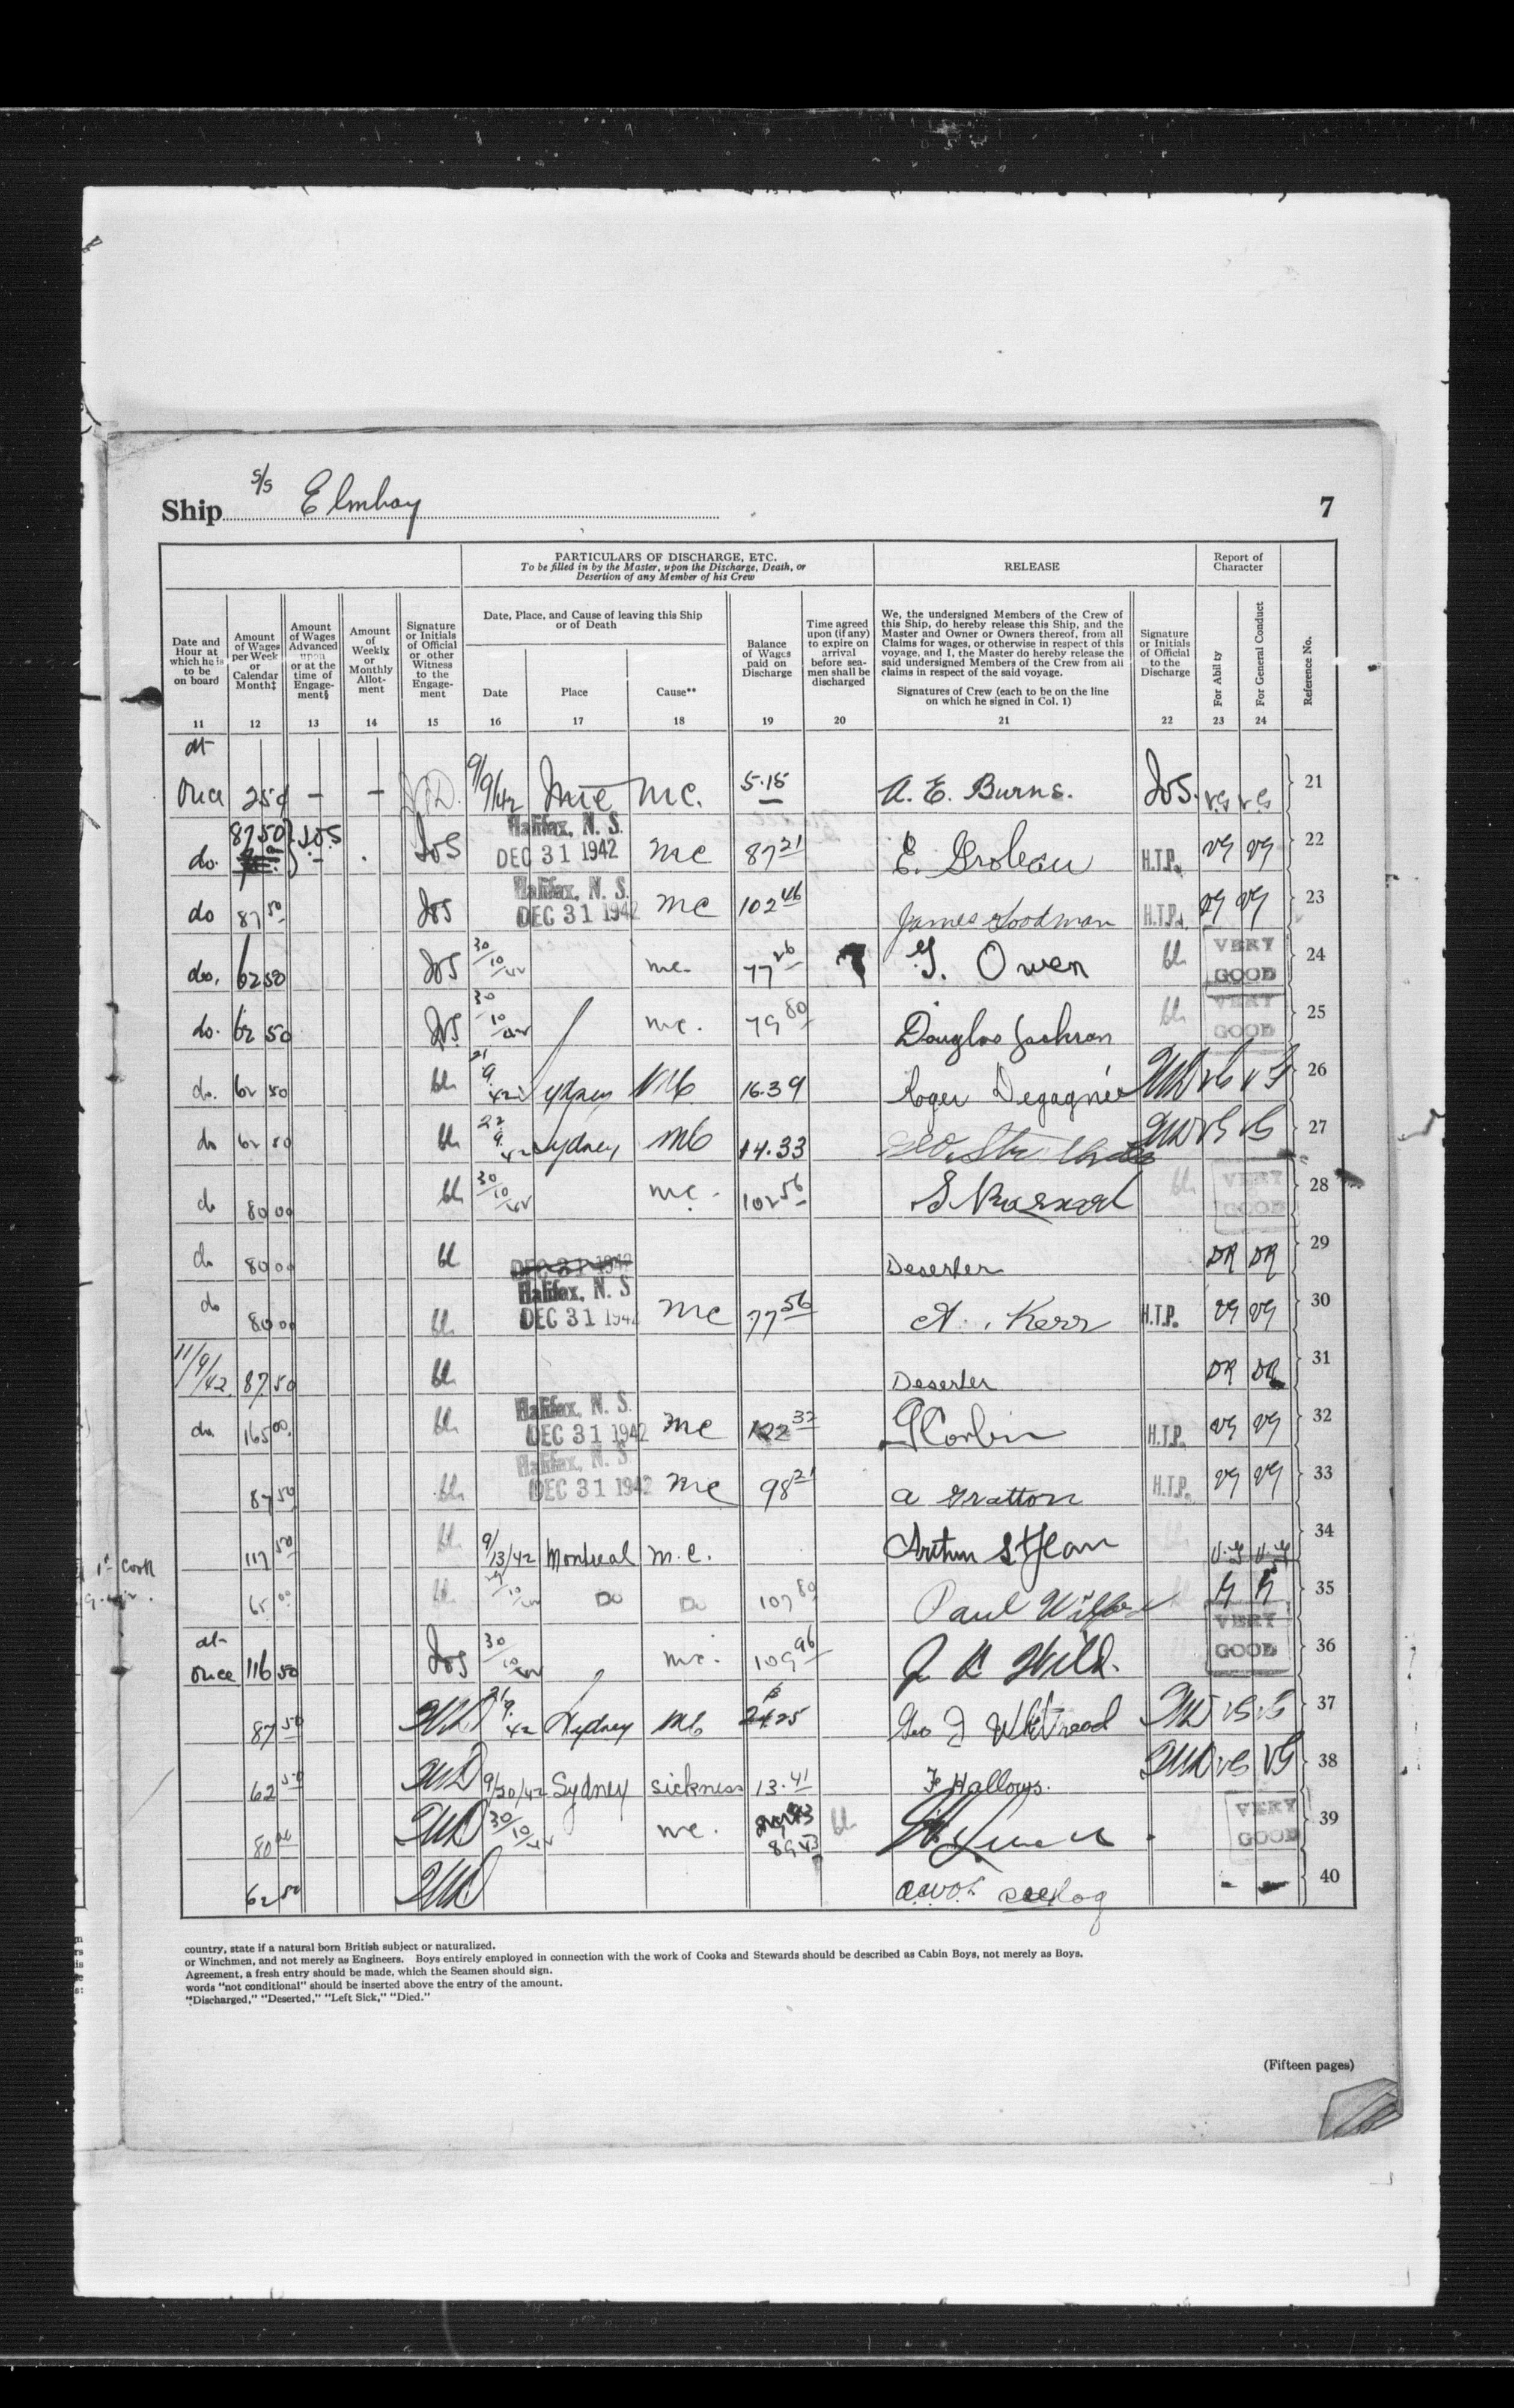 s/s
Ship Elmbay
7
PARTICULARS OF DISCHARGE, ETC.
To be filled in by the Master, upon the Discharge, Death, or
Desertion of any Member of his Crew
RELEASE
Report of
Character
Date and
Hour at
which he is
to be
on board
Amount
of Wages
per Week
or
Calendar
Month‡
Amount
of Wages
Advanced
upon
or at the
time of
Engage-
ment§
Amount
of
Weekly
or
Monthly
Allot-
ment
Signature
or Initials
of Official
or other
Witness
to the
Engage-
ment
Date, Place, and Cause of leaving this Ship
or of Death
Date Place Cause**
Balance
of Wages
paid on
Discharge
Time agreed
upon (if any)
to expire on
arrival
before sea-
men shall be
discharged
We, the undersigned Members of the Crew of
this Ship, do hereby release this Ship, and the
Master and Owner or Owners thereof, from all
Claims for wages, or otherwise in respect of this
voyage, and I, the Master do hereby release the
said undersigned Members of the Crew from all
claims in respect of the said voyage.
Signatures of Crew (each to be on the line
on which he signed in Col. 1)
Signature
or Initials
of Official
to the
Discharge
For Ability
For General Conduct
Reference No.
11 12 13 14 15 16 17 18 19 20 21 22 23 24
at
once 250 - - 9/9/42 mc. 5.15 A. E. Burns. JOS. VG VG 21
do. 87 50 JOS JOS Halifax, N. S. DEC 31 1942 mc 87 21 E. Groleau H.T.P. VG VG 22
do 87 50 JOS Halifax, N. S. DEC 31 1942 mc 102 46 James Goodman H.T.P. VG VG 23
do. 62 50 JOS 30/10/42 mc. 77 26 G. Owen VERY GOOD 24
do. 62 50 JOS 30/10/42 mc. 79 80 Douglas Jackson VERY GOOD 25
do. 62 50 21 9 42 Sydney MC 16.39 Roger Degagnée VG VG 26
do 62 50 22 9 42 Sydney MC 14.33 VG VG 27
do 80 00 30/10/42 mc. 102 56 VERY GOOD 28
do 80 00 DEC 31 1942 Deserter DR DR 29
do 80 00 Halifax, N. S. DEC 31 1942 mc 77 56 A. Kerr H.T.P. VG VG 30
11/9/42 87 50 Deserter DR DR 31
do 165 00 Halifax, N. S. DEC 31 1942 mc 122 32 Corbin H.T.P. VG VG 32
87 50 Halifax, N. S. DEC 31 1942 mc 98 21 A Gratton H.T.P. VG VG 33
117 50 9/13/42 Montreal m.c. Arthur St Jean V.G V.G 34
1st Cook
65 00 Do Do 107 80 Paul 35
at
once 116 50 JOS 30/10/42 mc. 109 96 J Wild. VERY GOOD 36
87 50 42 Sydney MC 25 Geo Whitnead VG VG 37
62 50 9/20/42 Sydney sickness 13.41 F Hallows. VG VG 38
80 00 30/10/42 mc. 89 43 VERY GOOD 39
62 50 AWOL see log - - 40
country, state if a natural born British subject or naturalized.
or Winchmen, and not merely as Engineers. Boys entirely employed in connection with the work of Cooks and Stewards should be described as Cabin Boys, not merely as Boys.
Agreement, a fresh entry should be made, which the Seamen should sign.
words "not conditional" should be inserted above the entry of the amount.
"Discharged," "Deserted," "Left Sick," "Died."
(Fifteen pages)